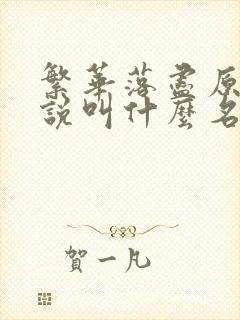 繁華落盡原
說叫什麼名
賀一凡